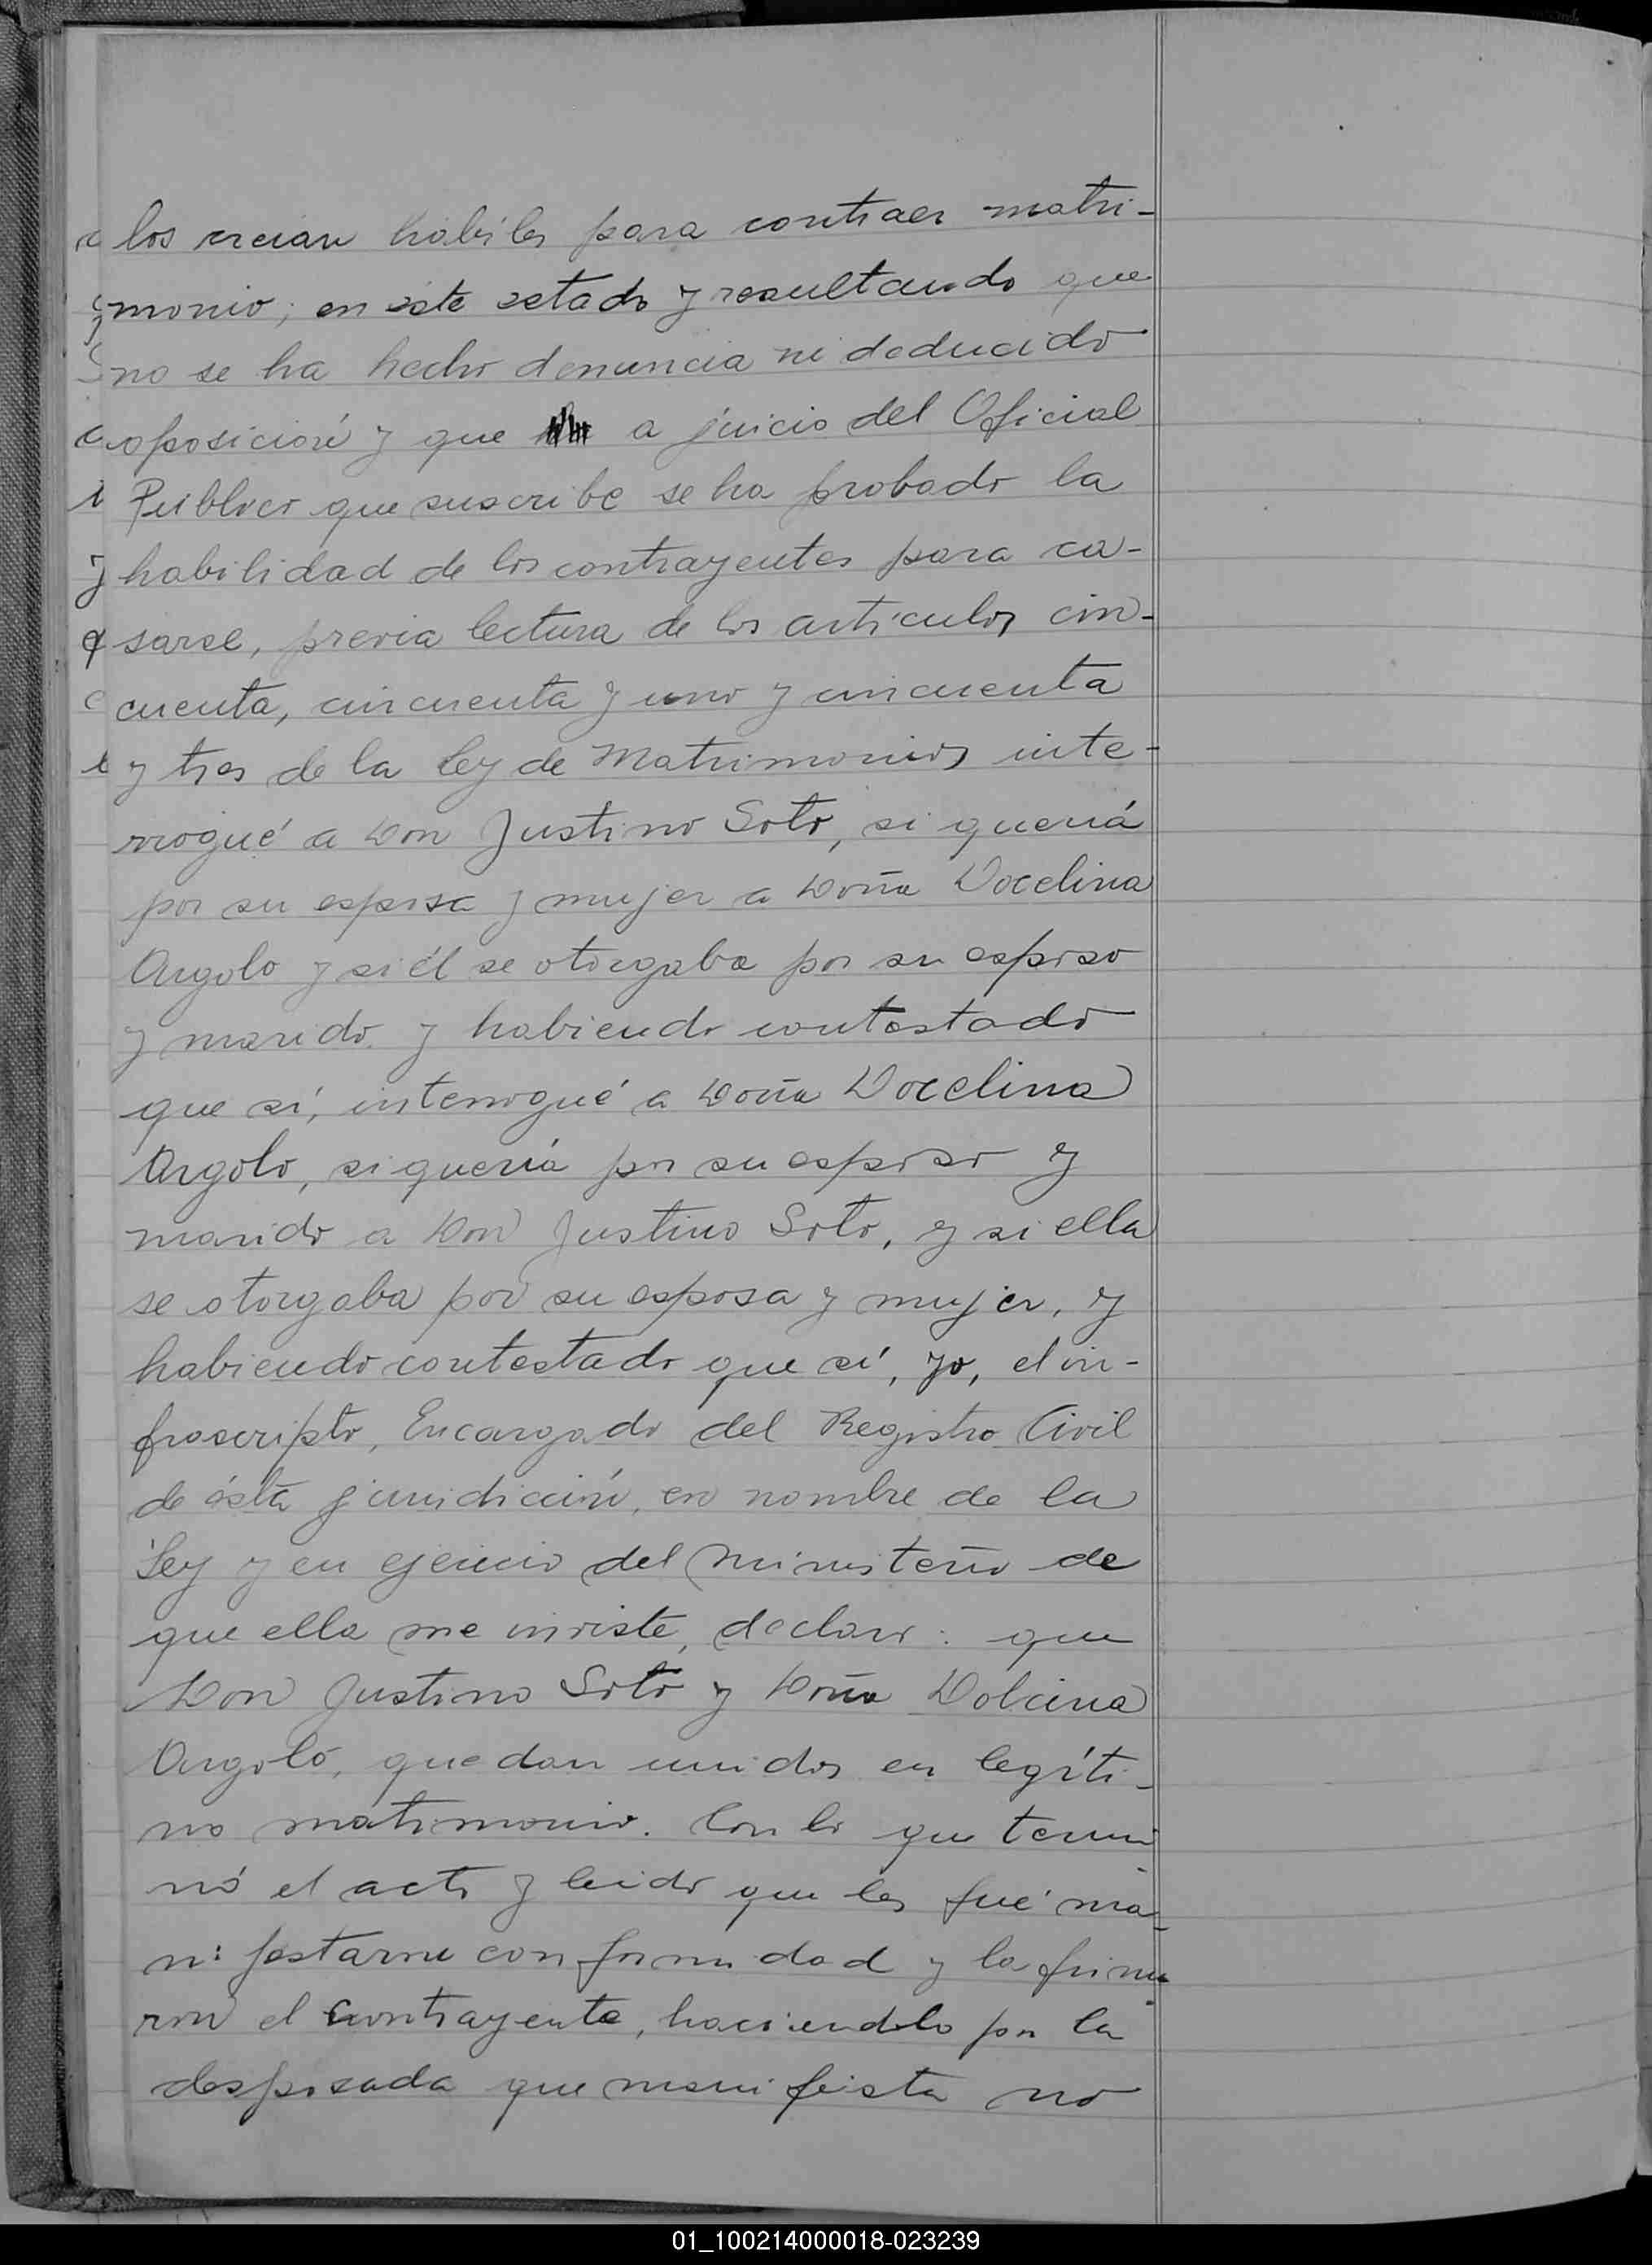 los creian habiles para contraer matri-
monio; en este estado y resultando que
no se ha hecho denuncia ni deducido
oposición y que a juicio del Oficial
Público que suscribe se ha probado la
habilidad de los contrayentes para ca-
sarse, previa lectura de los artículos cin-
cuenta, cincuenta y uno y cincuenta
y tres de la ley de Matrimonios inte-
rrogué a Don Justino Soto, si quería
por su esposa y mujer a Doña Docelina
Argolo y si él se otorgaba por su esposo
y marido y habiendo contestado
que sí, interrogué a Doña Docelina
Argolo, si quería por su esposo y
marido a Don Justino Soto, y si ella
se otorgaba por su esposa y mujer, y
habiendo contestado que sí, yo, el in-
frascripto, Encargado del Registro Civil
de ésta juridicción, en nombre de la
Ley y en ejercicio del ministerio de
que ella me inviste, declaro: que
Don Justino Soto y Doña Dolcina
Argolo, quedan unidos en legíti-
mo matrimonio. Con lo que termi
nó el acto y leido que les fué ma-
nifestarme conformidad y la firma
ron el contrayente, haciendolo por la
desposada que manifiesta no
01_100214000018-023239